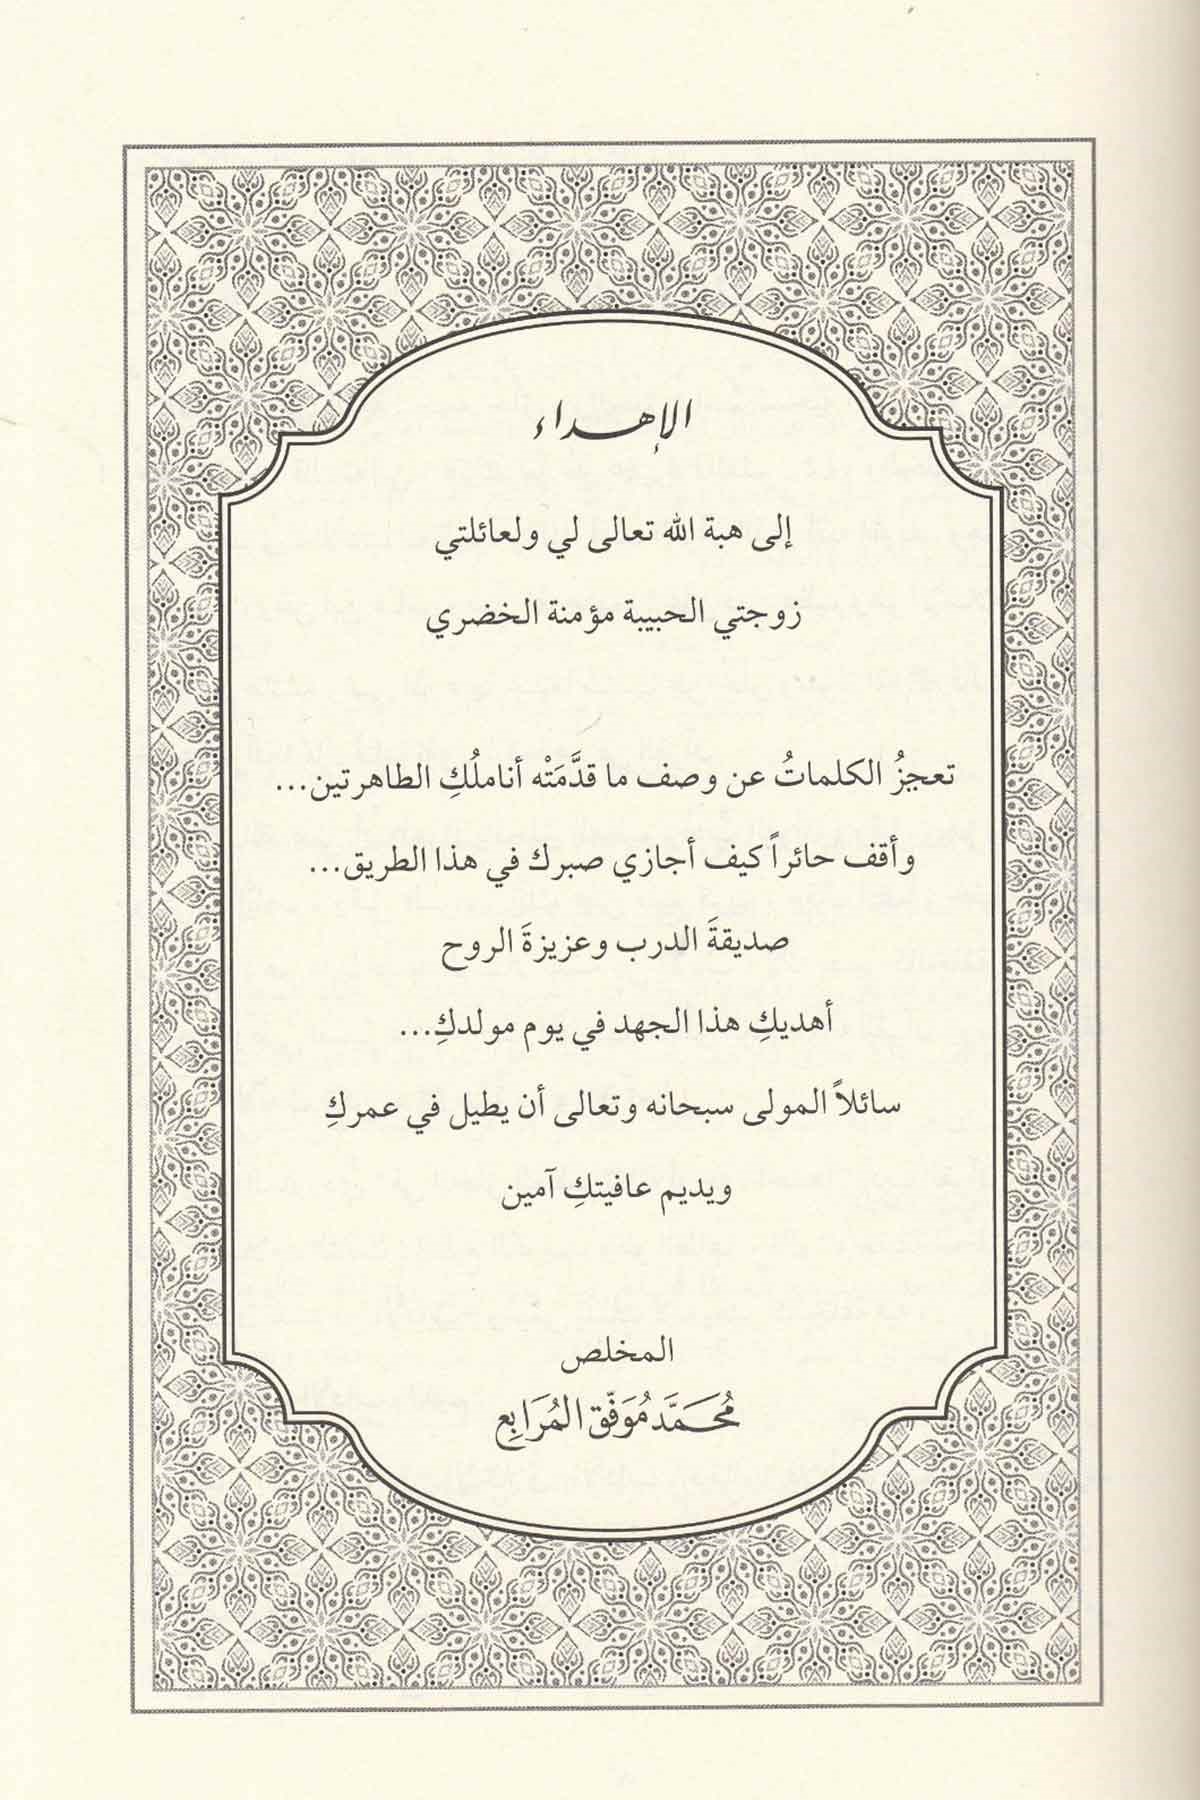 الإهداء
إلى هبة الله تعالى لي ولعائلتي
زوجتي الحبيبة مؤمنة الخضري
تعجزُ الكلماتُ عن وصف ما قدَّمَتْه أناملُكِ الطاهرتين...
وأقف حائراً كيف أجازي صبرك في هذا الطريق...
صديقةَ الدرب وعزيزةَ الروح
أهديكِ هذا الجهد في يوم مولدكِ...
سائلاً المولى سبحانه وتعالى أن يطيل في عمركِ
ويديم عافيتكِ آمين
المخلص
مُحَمَّد مُوَفَّق المُرَابِع